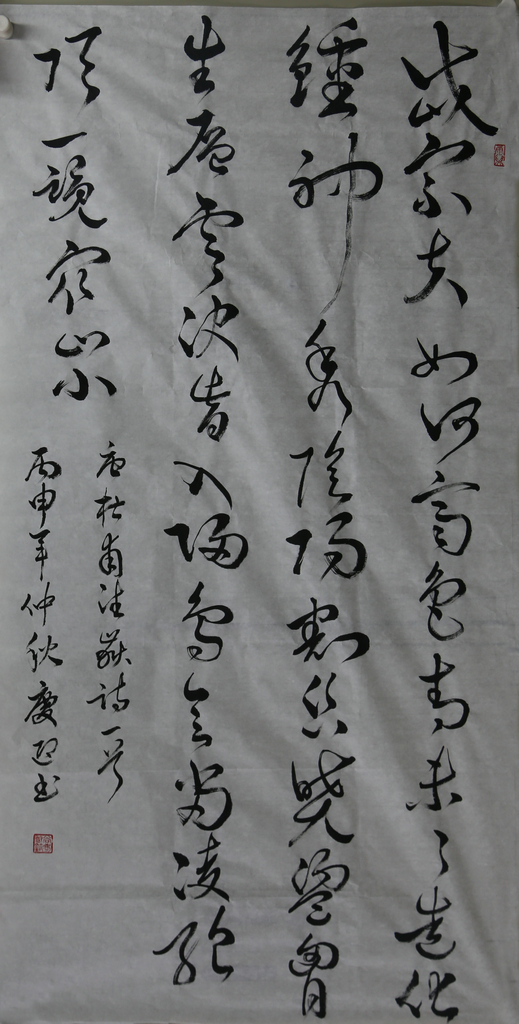 岱宗夫如何齊魯青未了造化
鍾神秀陰陽割昏曉盪胸
生層雲決眥入歸鳥會當凌絕
頂一覽眾山小
唐杜甫望嶽詩一首
丙申年仲秋慶書